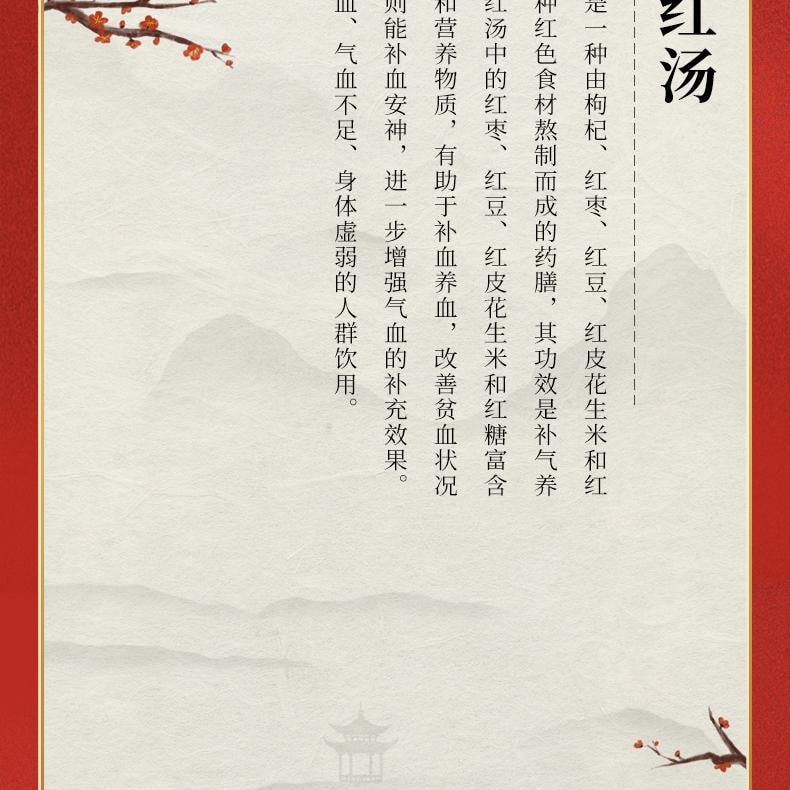 红汤
是一种由枸杞、红枣、红豆、红皮花生米和红
种红色食材熬制而成的药膳，其功效是补气养
红汤中的红枣、红豆、红皮花生米和红糖富含
和营养物质，有助于补血养血，改善贫血状况
则能补血安神，进一步增强气血的补充效果。
血、气血不足、身体虚弱的人群饮用。